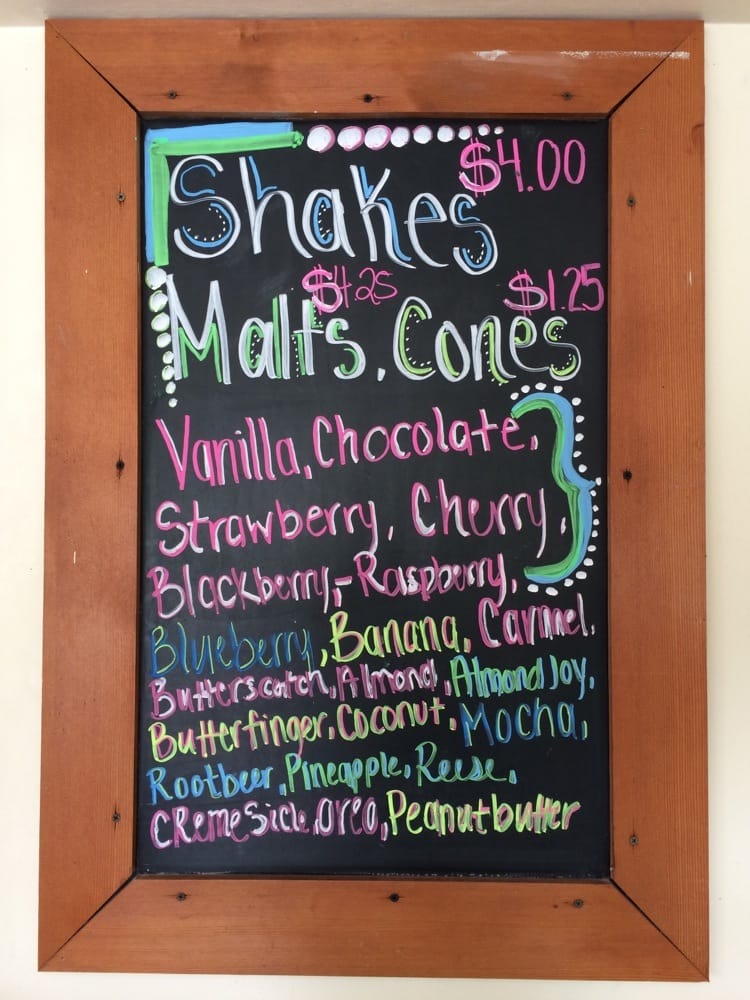 $4.00
Shakes
$4.25 $1.25
Malts, Cones
Vanilla, Chocolate,
Strawberry, Cherry,
Blackberry,-Raspberry,
Blueberry, Banana, Carmel,
Butterscotch, Almond, Almond Joy,
Butterfinger, Coconut, Mocha,
Rootbeer, Pineapple, Reese,
CRemeSicle, OREO, Peanutbutter